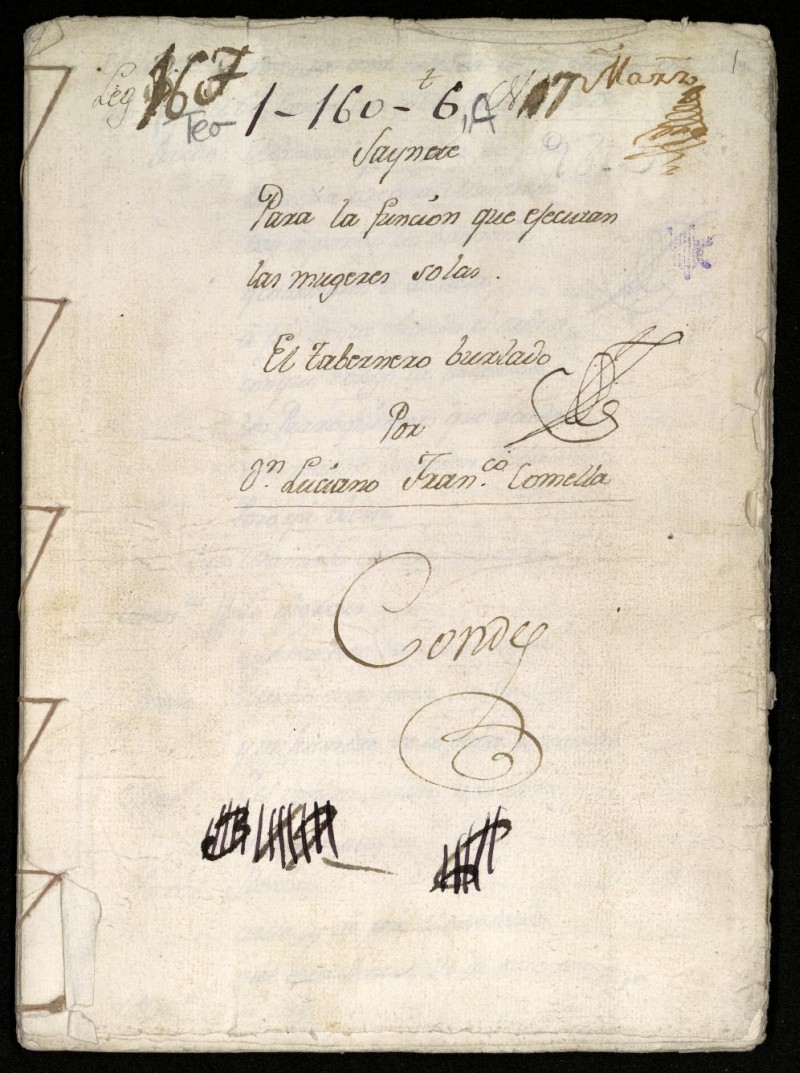 1
Leg 167
Teo 1-160-6, A
N 17
Saynete
Para la funcion que ejecutan
las mugeres solas.
El tabernero burlado
Por
Dn. Luciano Fran.co Comella
Conde